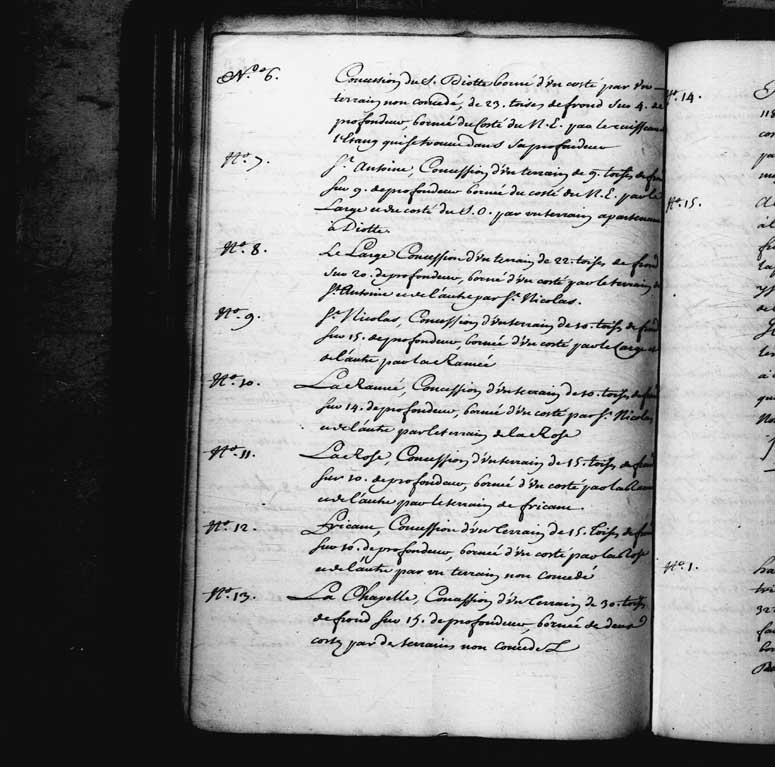 N.º 6. Concession du S. Diotte borné d'un costé par un
terrain non concedé, de 23. toises de frond sur 4. de
profondeur, bornée du Costé du N. E. par le ruisseau
l'Etang qui se trouve dans sa profondeur
Nº. 7. St. Antoine, Concession d'un terrain de 9. toises de
sur 9. de profondeur borné du costé du N. E. par le
Large et du costé du S. O. par un terrain apartenant
à Diotte.
Nº. 8. Le Large Concession d'un terrain de 22. toises de frond
sur 20. de profondeur, borné d'un costé par le terrain
St. Antoine et de l'autre par St. Nicolas.
Nº. 9. St. Nicolas, Concession d'un terrain de 10. toises de
sur 15. de profondeur, bornée d'un costé par le Large et
de l'autre par La Ramée
Nº. 10. La Ramée, Concession d'un terrain de 10. toises de
sur 14. de profondeur, borné d'un costé par St. Nicolas
et de l'autre par le terrain de la Rose
Nº. 11. La Rose, Concession d'un terrain de 15. toises de
sur 10. de profondeur, borné d'un costé par la
et de l'autre par le terrain de fricane.
Nº. 12. Fricane, Concession d'un terrain de 15. toises de
sur 10. de profondeur, bornée d'un costé par la Rose
et de l'autre par un terrain non concedé
Nº. 13. La Chapelle, Concession d'un terrain de 30. toises
de frond sur 15. de profondeur, bornée de deux
costez par des terrains non concedez
Nº. 14.
118
Nº. 15.
Nº. 1.
32